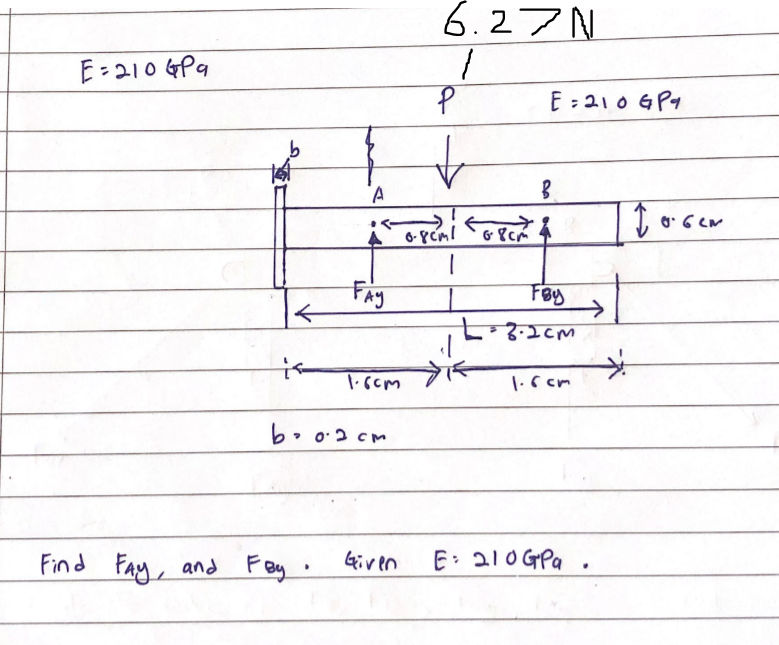 6.27N
E=210 GPa
P
E=210 GPa
b
A
B
0.8cm
0.8cm
0.6cm
FAy
FBy
L=3.2cm
1.6cm
1.6cm
b=0.2cm
Find FAy, and FBy. Given E=210GPa.